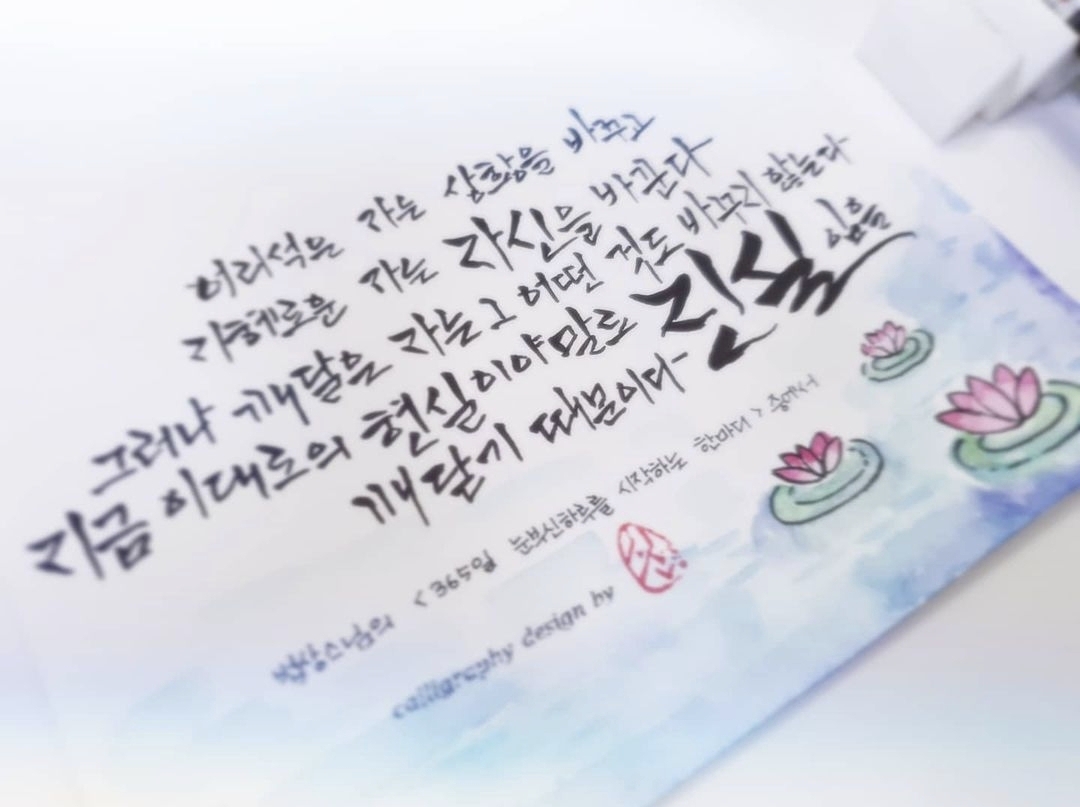 어리석은 자는 상황을 바꾸고
지혜로운 자는 자신을 바꾼다
그러나 깨달은 자는 그 어떤 것도 바꾸지 않는다
지금 이대로의 현실이야말로 진실임을
깨닫기 때문이다
법상스님의 <365일 눈부신하루를 시작하는 한마디> 중에서
calligraphy design by